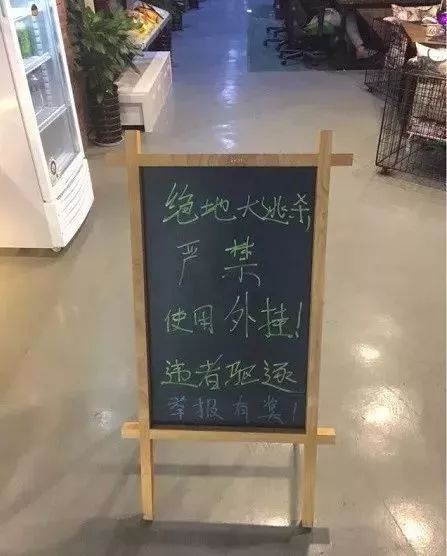 绝地大逃杀
严禁
使用外挂!
违者驱逐
举报有奖!